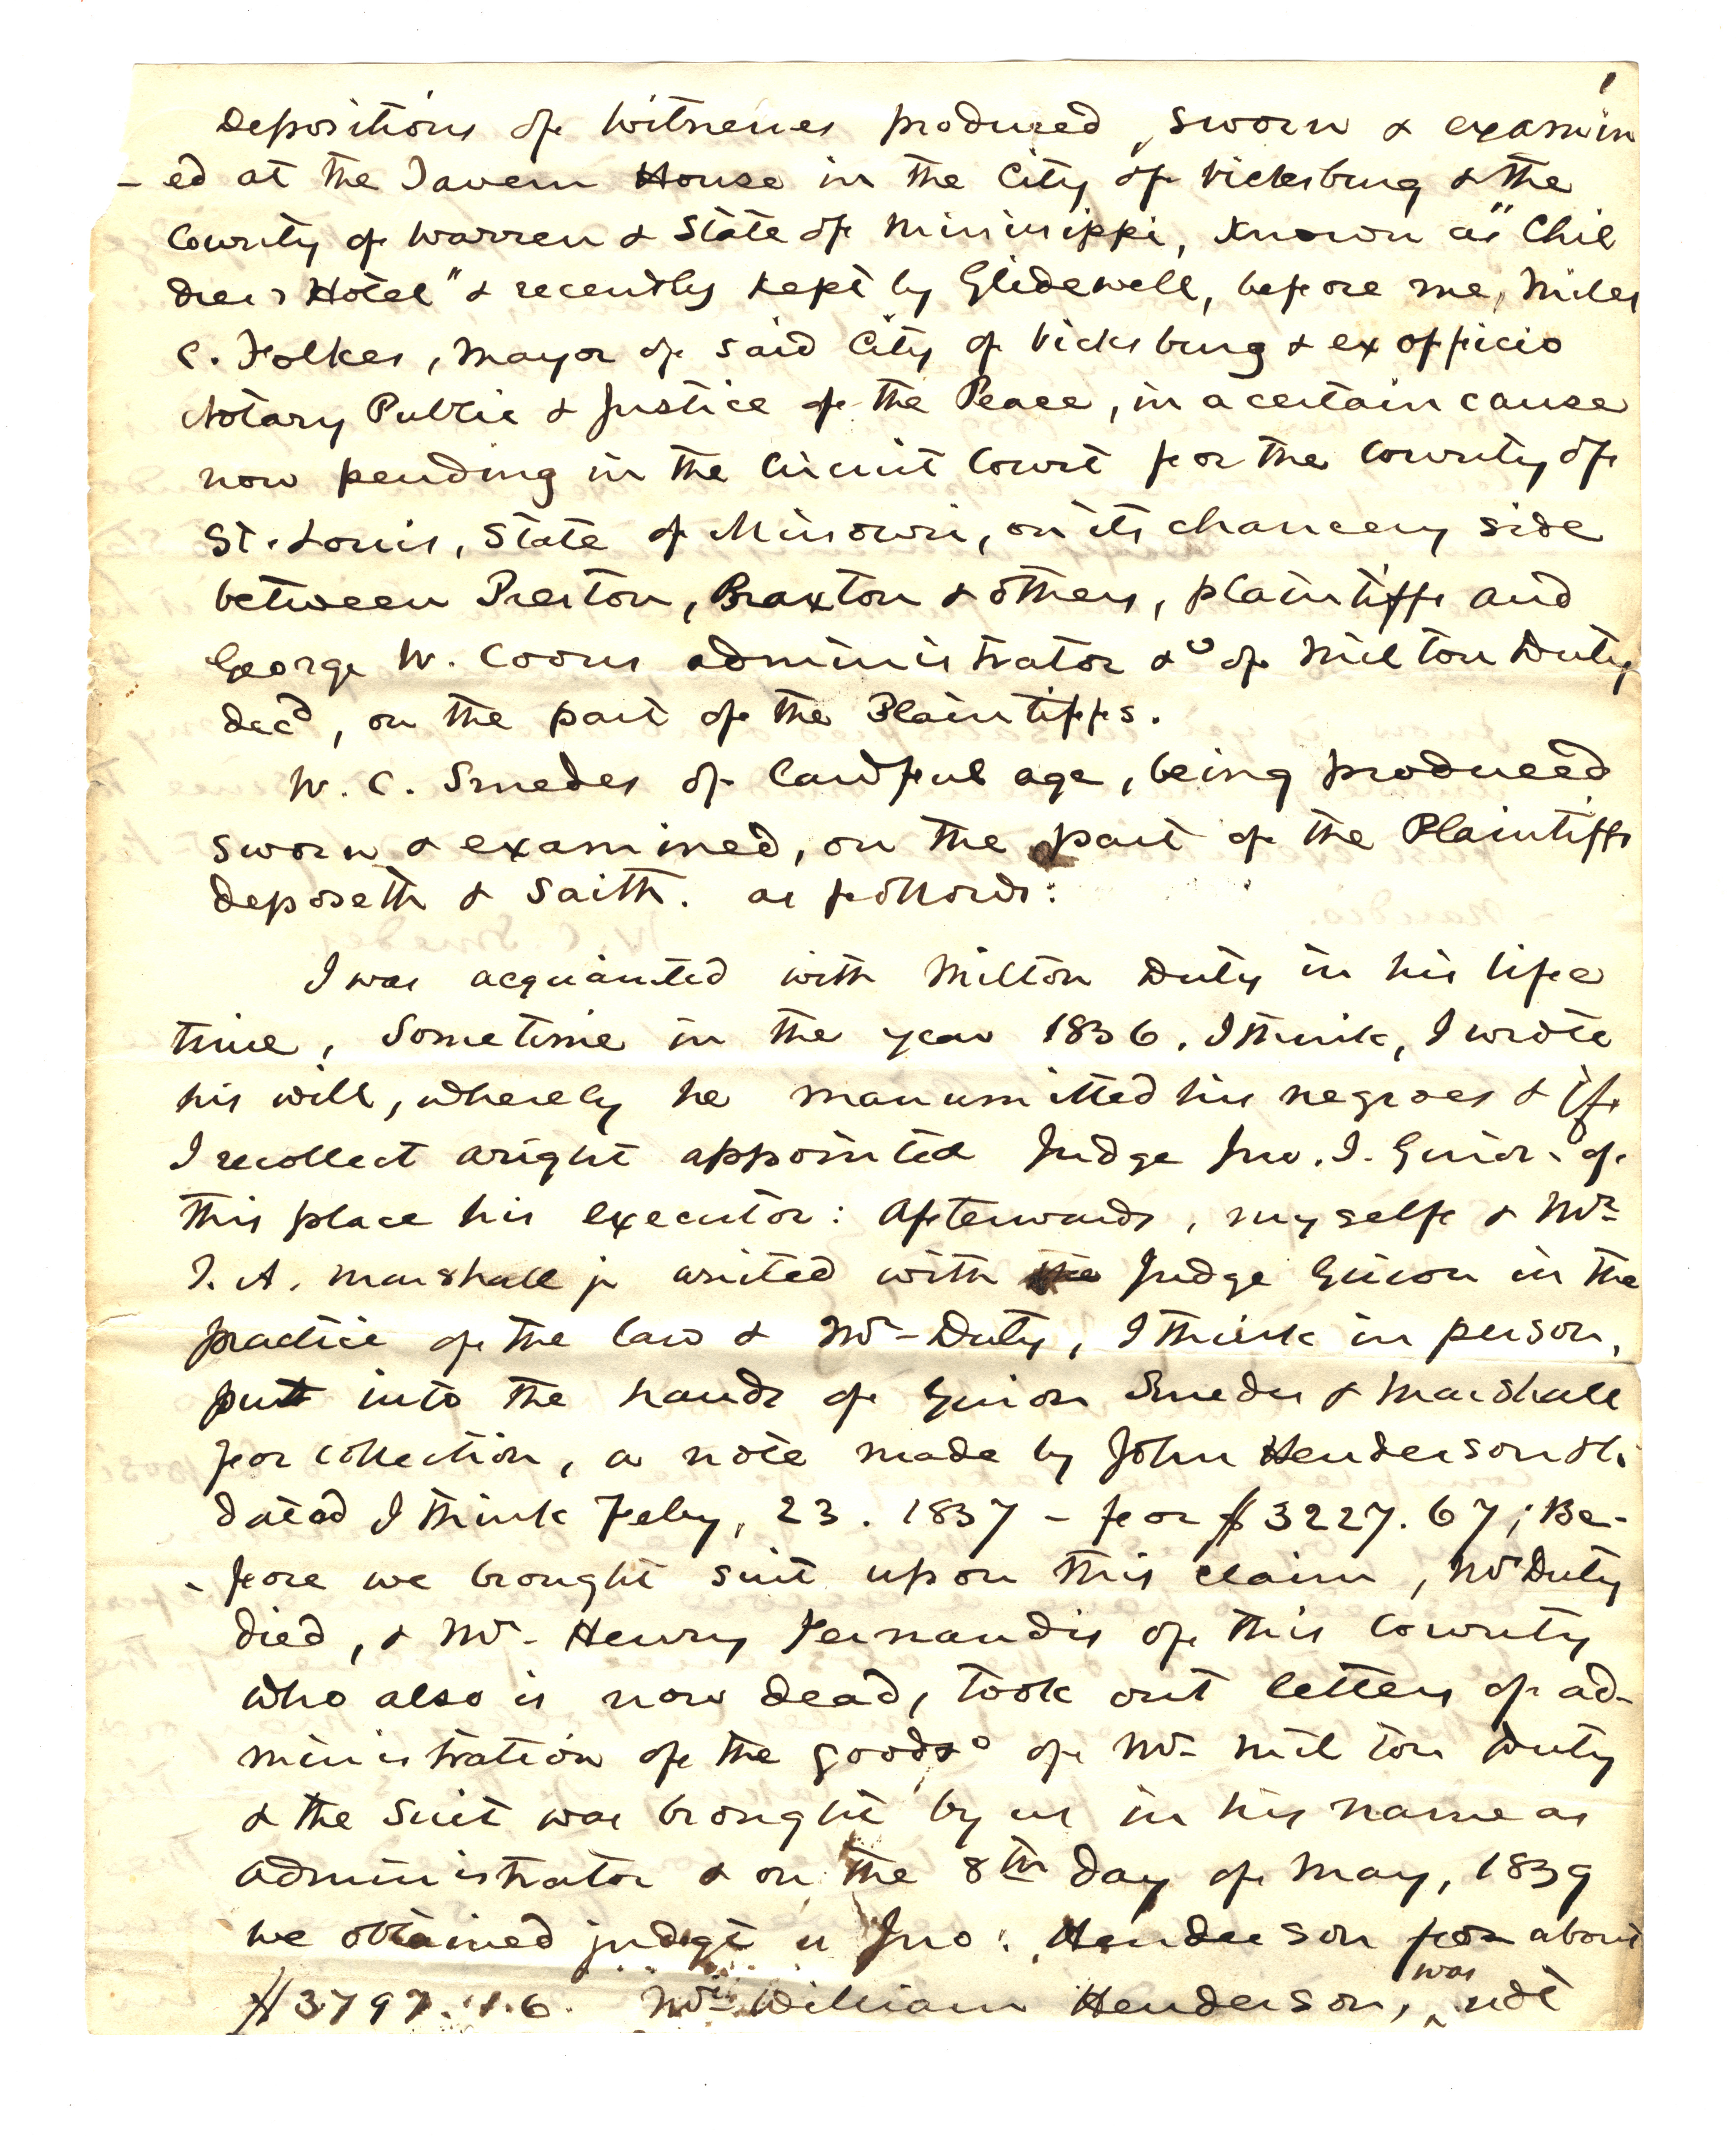 1
Depositions of Witnesses produced, sworn & examin
-ed at the Tavern House in the City of Vicksburg & the
County of Warren & State of Mississippi, known as "Chil
dres's Hotel" & recently kept by Glidewell, before me, Miles
C. Folkes, Mayor of said City of Vicksburg & ex officio
Notary Public & Justice of the Peace, in a certain cause
now pending in the Circuit Court for the County of
St. Louis, State of Missouri, on its chancery side
between Preston, Braxton & others, plaintiffs and
George W. Coons administrator &c of Milton Duty
decd, on the part of the Plaintiffs.
W. C. Smedes of lawful age, being produced
sworn & examined, on the part of the Plaintiffs
deposeth & saith. as follows:
I was acquainted with Milton Duty in his life
time, Sometime in the year 1836. I think, I wrote
his will, whereby he manumitted his negroes & if
I recollect aright appointed Judge Jno. I. Guion of
this place his executor: Afterwards, myself & Mr.
T. A. Marshall jr united with Judge Guion in the
practice of the law & Mr- Duty, I think in person,
put into the hands of Guion Smedes & Marshall
for collection, a note made by John Henderson
dated I think Feby, 23. 1837 - for $3227.67; Be-
-fore we brought suit upon this claim, Mr Duty
died, & Mr. Henry Fernandis of this County
who also is now dead, took out letters of ad-
ministration of the goods &c of Mr- Milton Duty
& the suit was brought by us in his name as
administrator & on the 8th day of May, 1839
we obtained judgt v Jno: Henderson for about
$3797.16. Mr William Henderson, was not